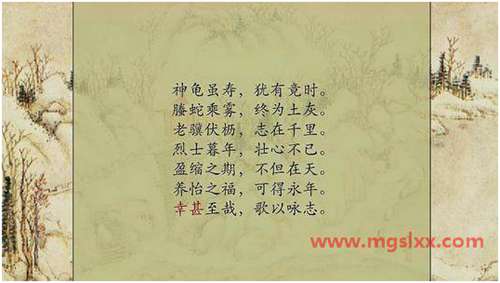 神龟虽寿，犹有竟时。
螣蛇乘雾，终为土灰。
老骥伏枥，志在千里。
烈士暮年，壮心不已。
盈缩之期，不但在天。
养怡之福，可得永年。
幸甚至哉，歌以咏志。
www.mgslxx.com